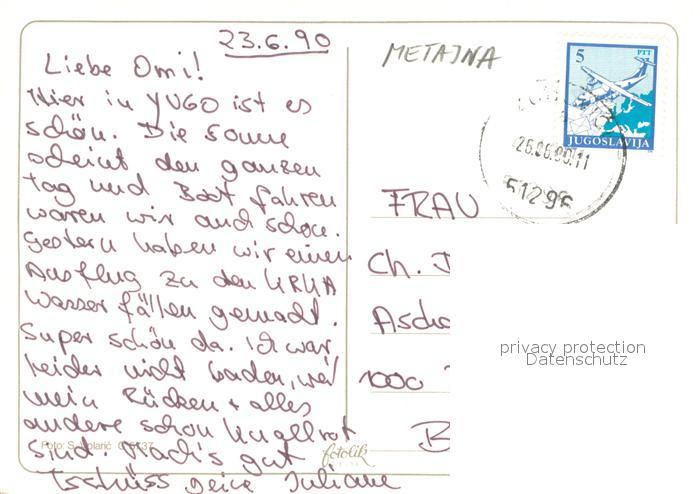 23.6.90
METAJNA
Liebe Omi!
Hier in YUGO ist es
schön. Die Sonne
scheint den ganzen
Tag und Boot fahren
waren wir auch schon.
Gestern haben wir einen
Ausflug zu den KRKA
Wasserfällen gemacht.
Super schön da. Ich war
leider nicht baden, weil
mein Rücken + alles
andere schon knallrot
sind. Mach's gut
Tschüss Juliane
5
PTT
JUGOSLAVIJA
26.06.90.11
51296
FRAU
Ch.
1000
Foto: S.
fotolik
privacy protection
Datenschutz